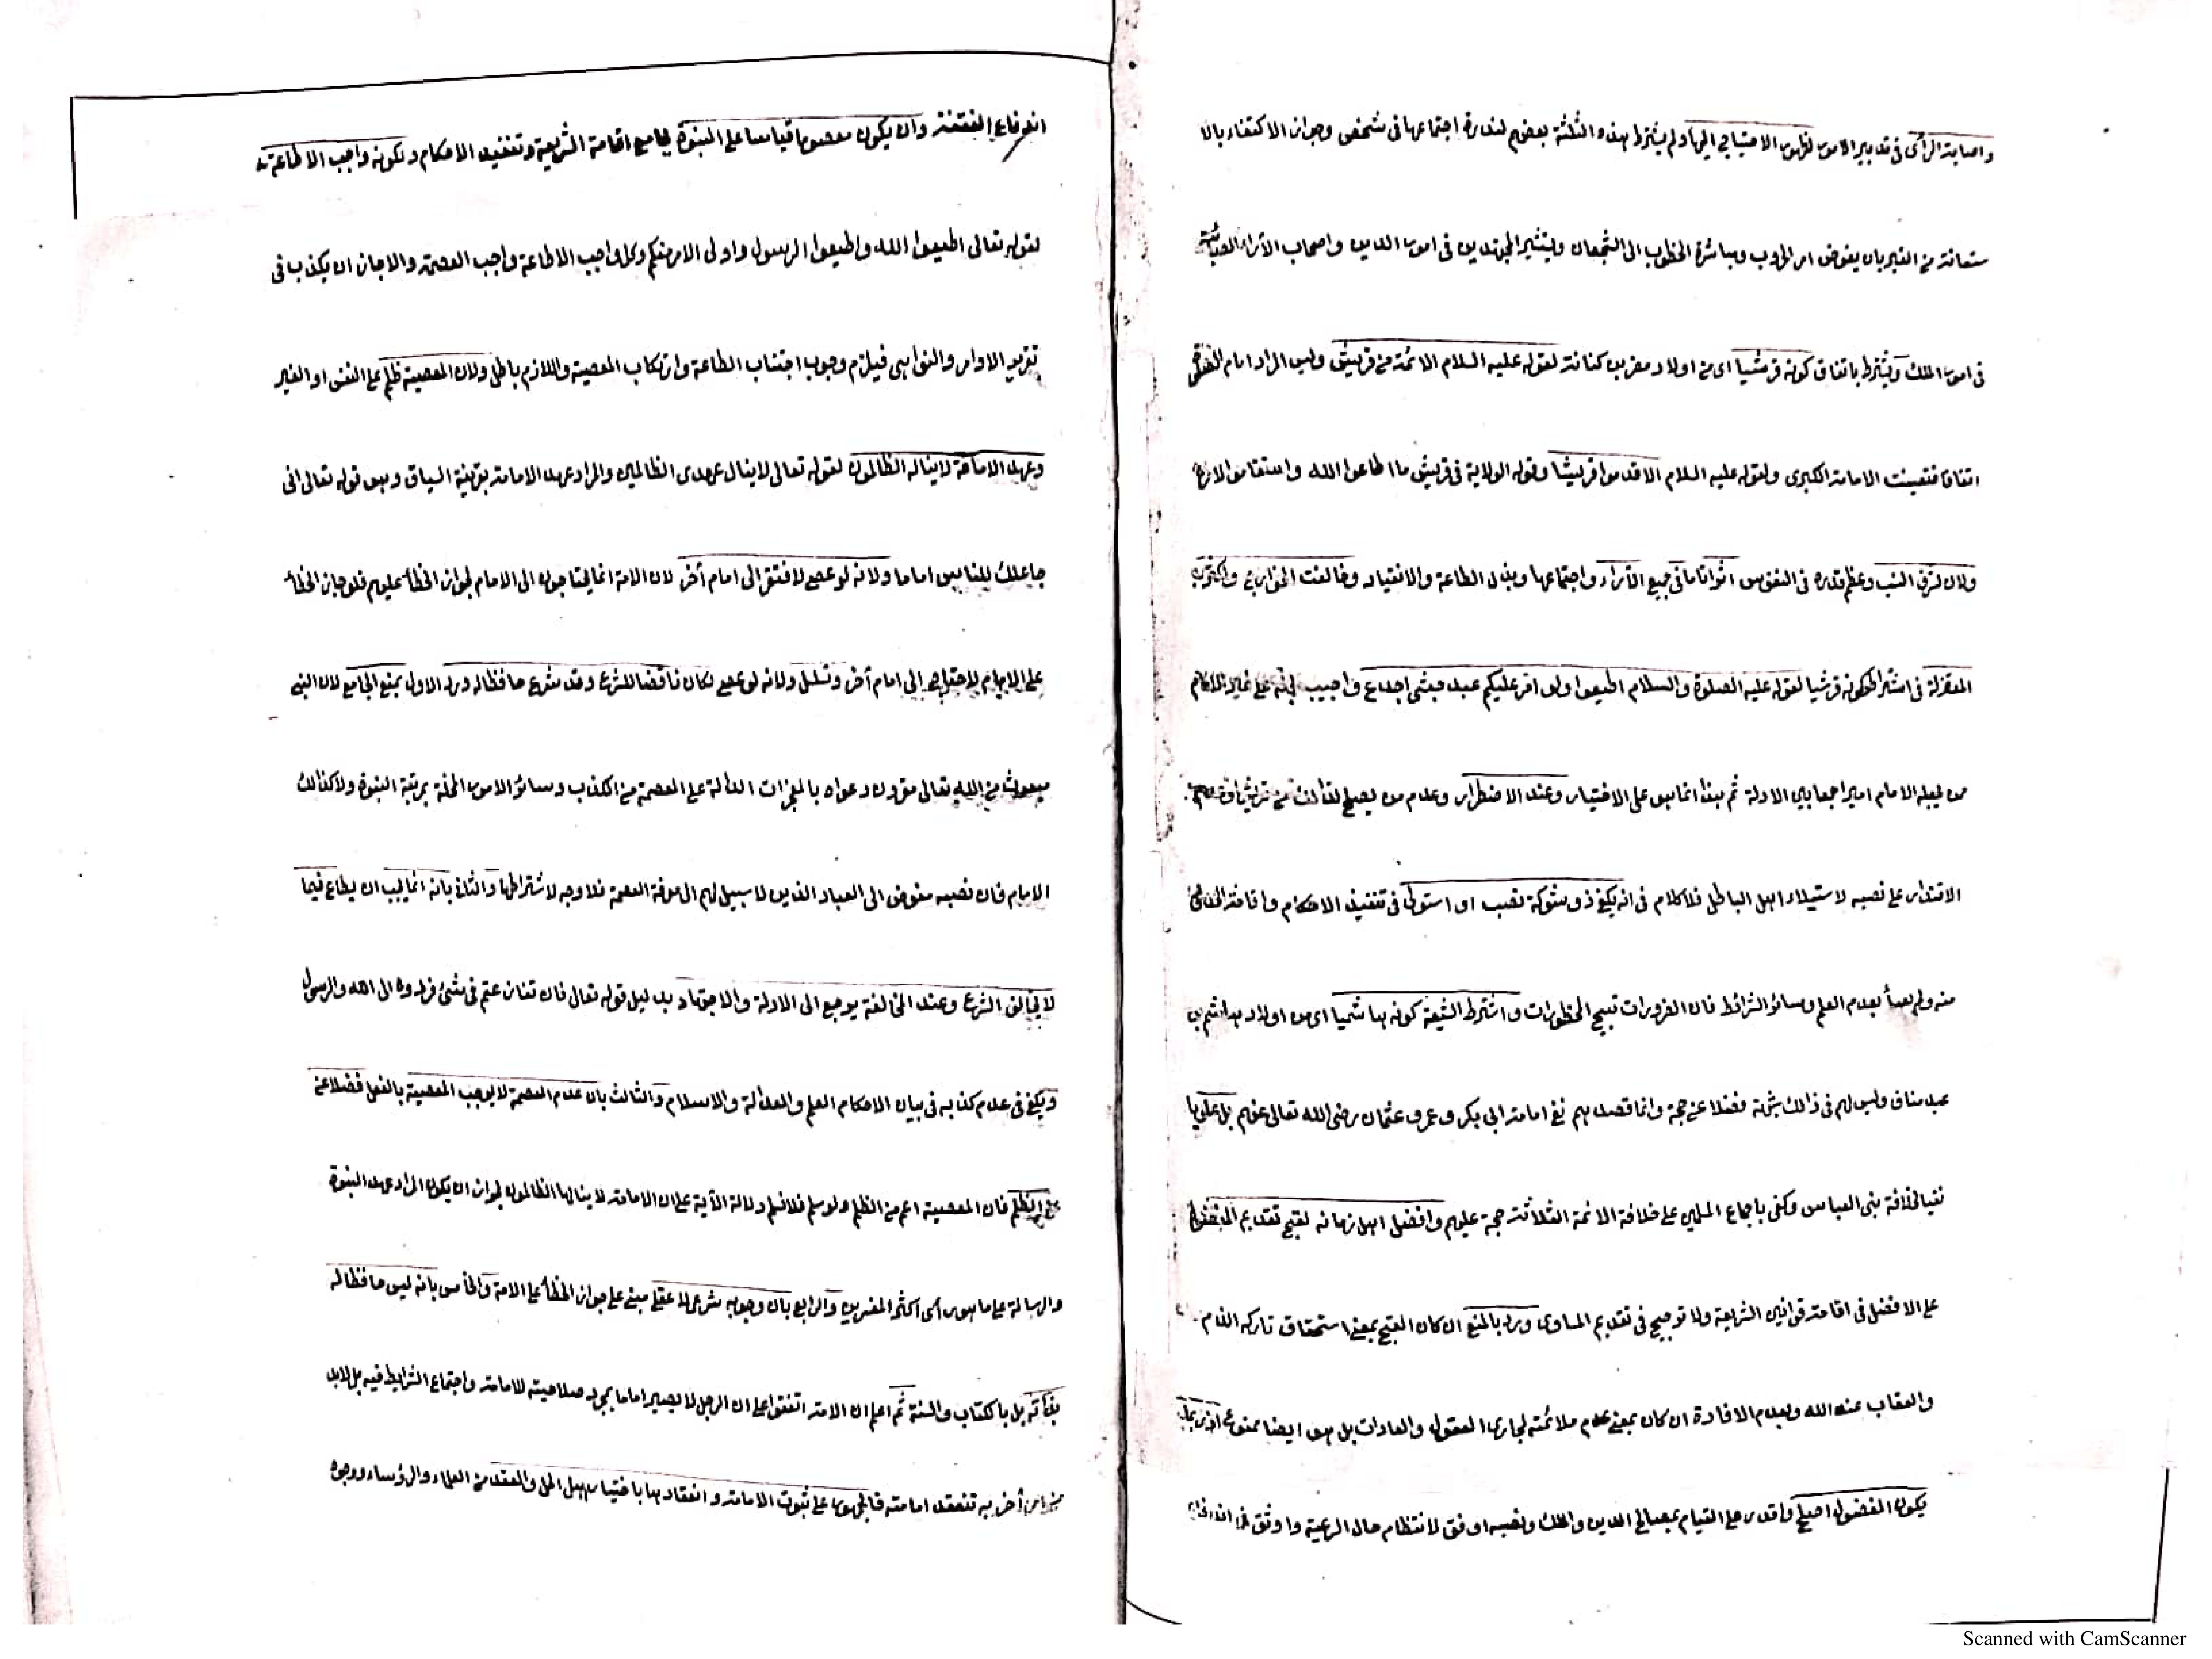 واصابة الرأى فى تدبير الامور لظهور الاحتياج اليها ولم يشترط هذه الثلثة بعضهم لندرة اجتماعها فى شخص وجواز الاكتفاء بالا
ستعانة من الغير بان يفوض امر الحروب ومباشرة الخطوب الى الشجعان ويستشير المجتهدين فى امور الدين واصحاب الآراء الصائبة
فى امور الملك ويشترط باتفاق كونه قرشيا اى من اولاد مضر بن كنانة لقوله عليه السلام الائمة من قريش وليس المراد امام الصلوة
اتفاقا فتعينت الامامة الكبرى ولقوله عليه السلام الا قدموا قريشا وقوله الولاية فى قريش ما اطاعوا الله واستقاموا لامره
ولان لشرف النسب وعظم قدره فى النفوس اثرا تاما فى جميع الآراء واجتماعها وبذل الطاعة والانقياد وخالفت الخوارج واكثر
المعتزلة فى اشتراط كونه قرشيا لقوله عليه الصلوة والسلام اطيعوا ولو امر عليكم عبد حبشى اجدع واجيب بانه على غير الامام
من يجعله الامام اميرا جمعا بين الادلة ثم هذا انما هو على الاختيار وعند الاضطرار وعدم من يصلح لذالك من قريش او عدم
الاقتدار على نصبه لاستيلاء اهل الباطل فلا كلام فى انه يكفى ذو شوكة نصب او استولى فى تنفيذ الاحكام واقامة الحدود
منه ولم يعبأ بعدم العلم وسائر الشرائط فان الضرورات تبيح المحظورات واشترط الشيعة كونه هاشميا اى من اولاد هاشم بن
عبد مناف وليس لهم فى ذالك شبهة فضلا عن حجة وانما قصدهم نفى امامة ابى بكر وعمر وعثمان رضى الله تعالى عنهم بل علويا
نفيا لخلافة بنى العباس وكفى باجماع المسلمين على خلافة الائمة الثلاثة حجة عليهم وافضل اهل زمانه لقبح تقديم المفضول
على الافضل فى اقامة قوانين الشريعة ولا ترجيح فى تقديم المساوى ورد بالمنع ان كان القبح بمعنى استحقاق تاركه الذم
والعقاب عند الله وبعدم الافادة ان كان بمعنى عدم ملائمته لمجارى العقول والعادات بل هو ايضا ممنوع اذ ربما
يكون المفضول اصلح واقدر على القيام بمصالح الدين والملك ونصبه اوفق لانتظام حال الرعية واوثق فى اندفاع
اندفاع الفتنة وان يكون معصوما قياسا على النبوة بجامع اقامة الشريعة وتنفيذ الاحكام ولكونه واجب الاطاعة
لقوله تعالى اطيعوا الله واطيعوا الرسول واولى الامر منكم وكل واجب الاطاعة واجب العصمة والا جاز ان يكذب فى
تقرير الاوامر والنواهى فيلزم وجوب اجتناب الطاعة وارتكاب المعصية واللازم باطل ولان المعصية ظلم على النفس او الغير
وعهد الامامة لا يناله الظالمون لقوله تعالى لا ينال عهدى الظالمين والمراد عهد الامامة بقرينة السياق وهو قوله تعالى انى
جاعلك للناس اماما ولانه لو عصى لافتقر الى امام آخر لان الامة انما يحتاجون الى الامام لجواز الخطأ عليهم فلو جاز الخطأ
على الامام لاحتاج الى امام آخر وتسلسل ولانه لو عصى لكان ناقضا للشرع وقد شرع حافظا له ورد الاول بمنع الجامع لان النبى
مبعوث من الله تعالى مقرون دعواه بالمعجزات الدالة على العصمة من الكذب وسائر الامور المخلة بمرتبة النبوة ولا كذالك
الامام فان نصبه مفوض الى العباد الذين لا سبيل لهم الى معرفة العصمة فلا وجه لاشتراطها والثانى بانه انما يجب ان يطاع فيما
لا يخالف الشرع وعند المخالفة يرجع الى الادلة والاجتهاد بدليل قوله تعالى فان تنازعتم فى شئ فردوه الى الله والرسول
ويكفى فى عدم كذبه فى بيان الاحكام العلم والعدالة والاسلام والثالث بان عدم العصمة لا يوجب المعصية بالفعل فضلا عن
عن الظلم فان المعصية اعم من الظلم ولو سلم فلا نسلم دلالة الآية على ان الامامة لا ينالها الظالمون لجواز ان يكون المراد عهد النبوة
والرسالة على ما هو رأى اكثر المفسرين والرابع بان وجوبه شرعى لا عقلى مبنى على جواز الخطأ على الامة والخامس بانه ليس حافظا له
بذاته بل بالكتاب والسنة ثم اعلم ان الامة اتفقوا على ان الرجل لا يصير اماما بمجرد صلاحيته للامامة واجتماع الشرايط فيه بل لابد
من امر آخر به تنعقد امامته فالجمهور على ثبوت الامامة وانعقادها باختيار اهل الحل والعقد من العلماء والرؤساء ووجوه
Scanned with CamScanner